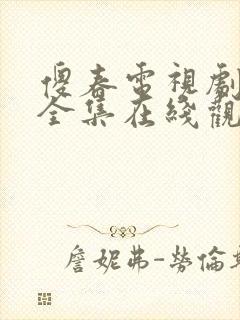 傻春電視劇
全集在綫觀
詹妮弗-勞倫斯